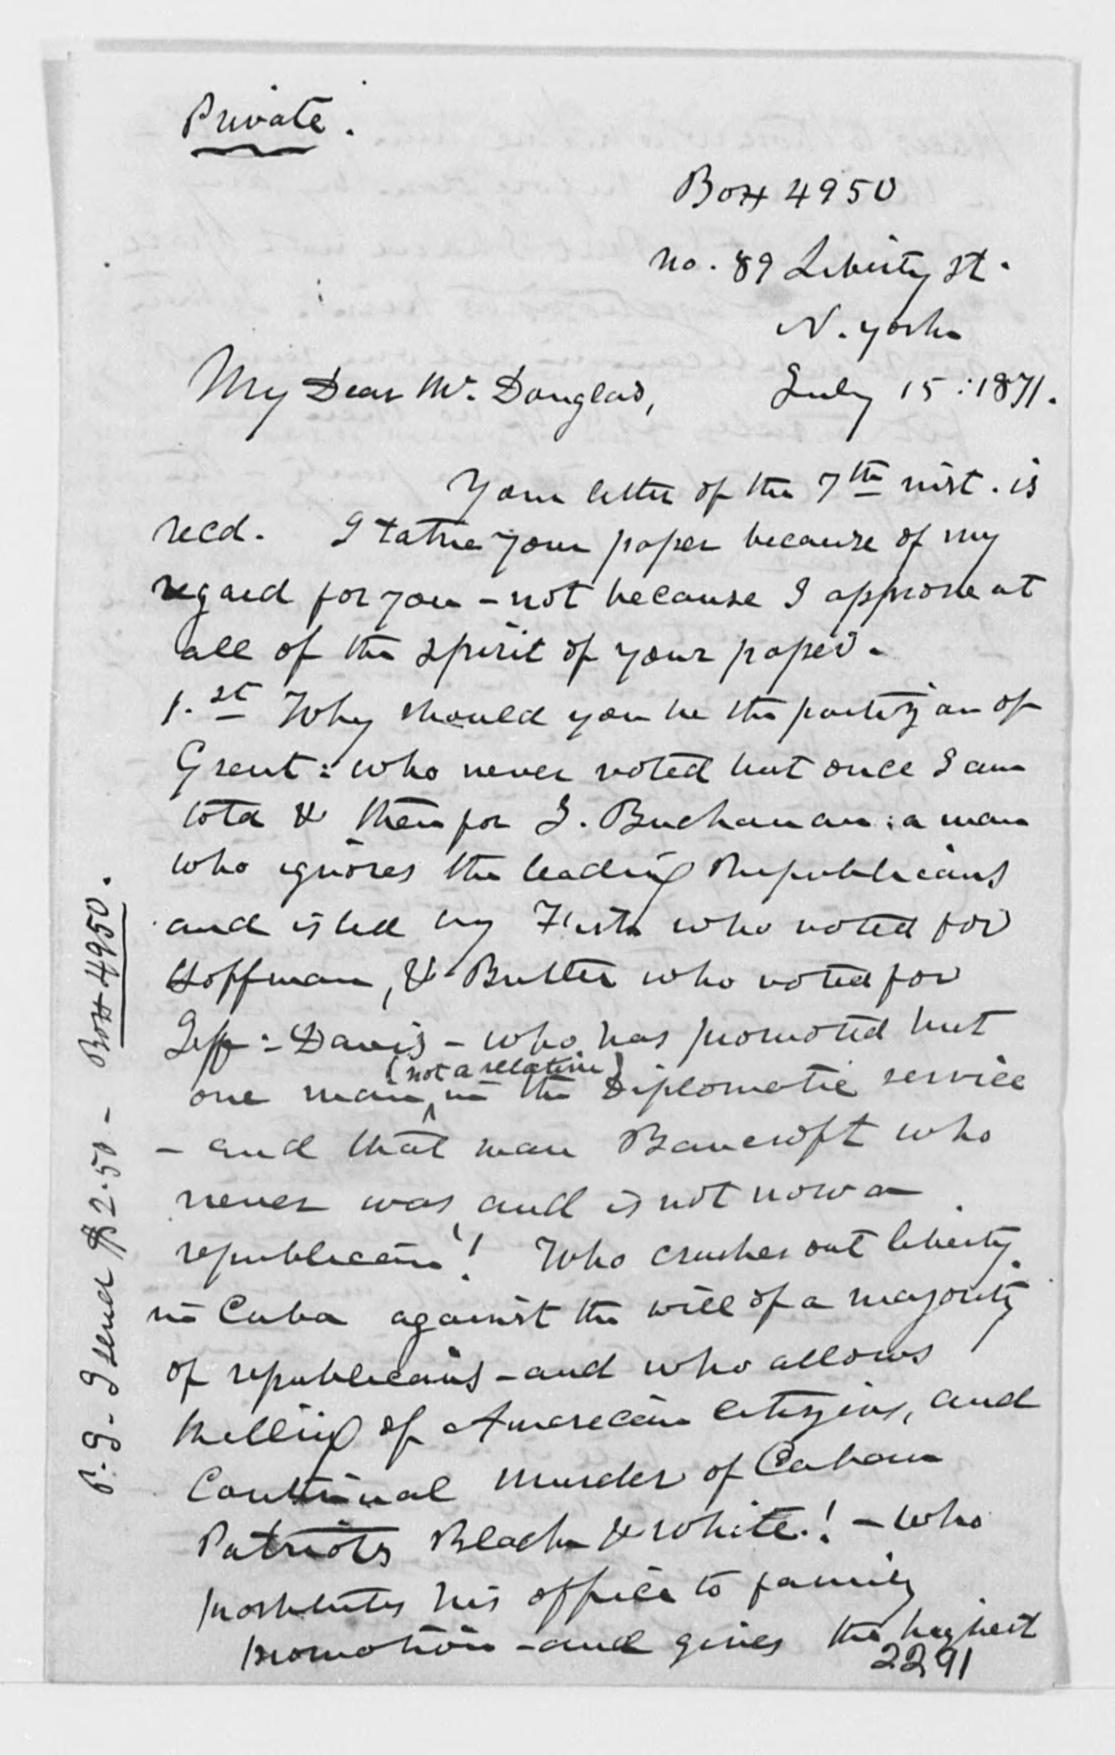 Private.
Box 4950
No. 89 Liberty St.
N. York
July 15: 1871.
My Dear Mr. Douglas,
Your letter of the 7th inst. is
recd. I take your paper because of my
regard for you - not because I approve at
all of the spirit of your paper.
1.st Why should you be the partizan of
Grant: who never voted but once I am
told & then for J. Buchanan: a man
who ignores the leading Republicans
and is led by Fish who voted for
Hoffman, & Butler who voted for
Jeff: Davis - who has promoted but
one man (not a relative) in the Diplomatic service
- and that man Bancroft who
never was, and is not now a
republican! Who crushes out liberty
in Cuba against the will of a majority
of republicans - and who allows
killing of American citizens, and
Continual murder of Cuban
Patriots Black & White! - who
prostitutes his office to family
promotion - and gives the highest
2291
P.S. I send $2.50 - Box 4950.